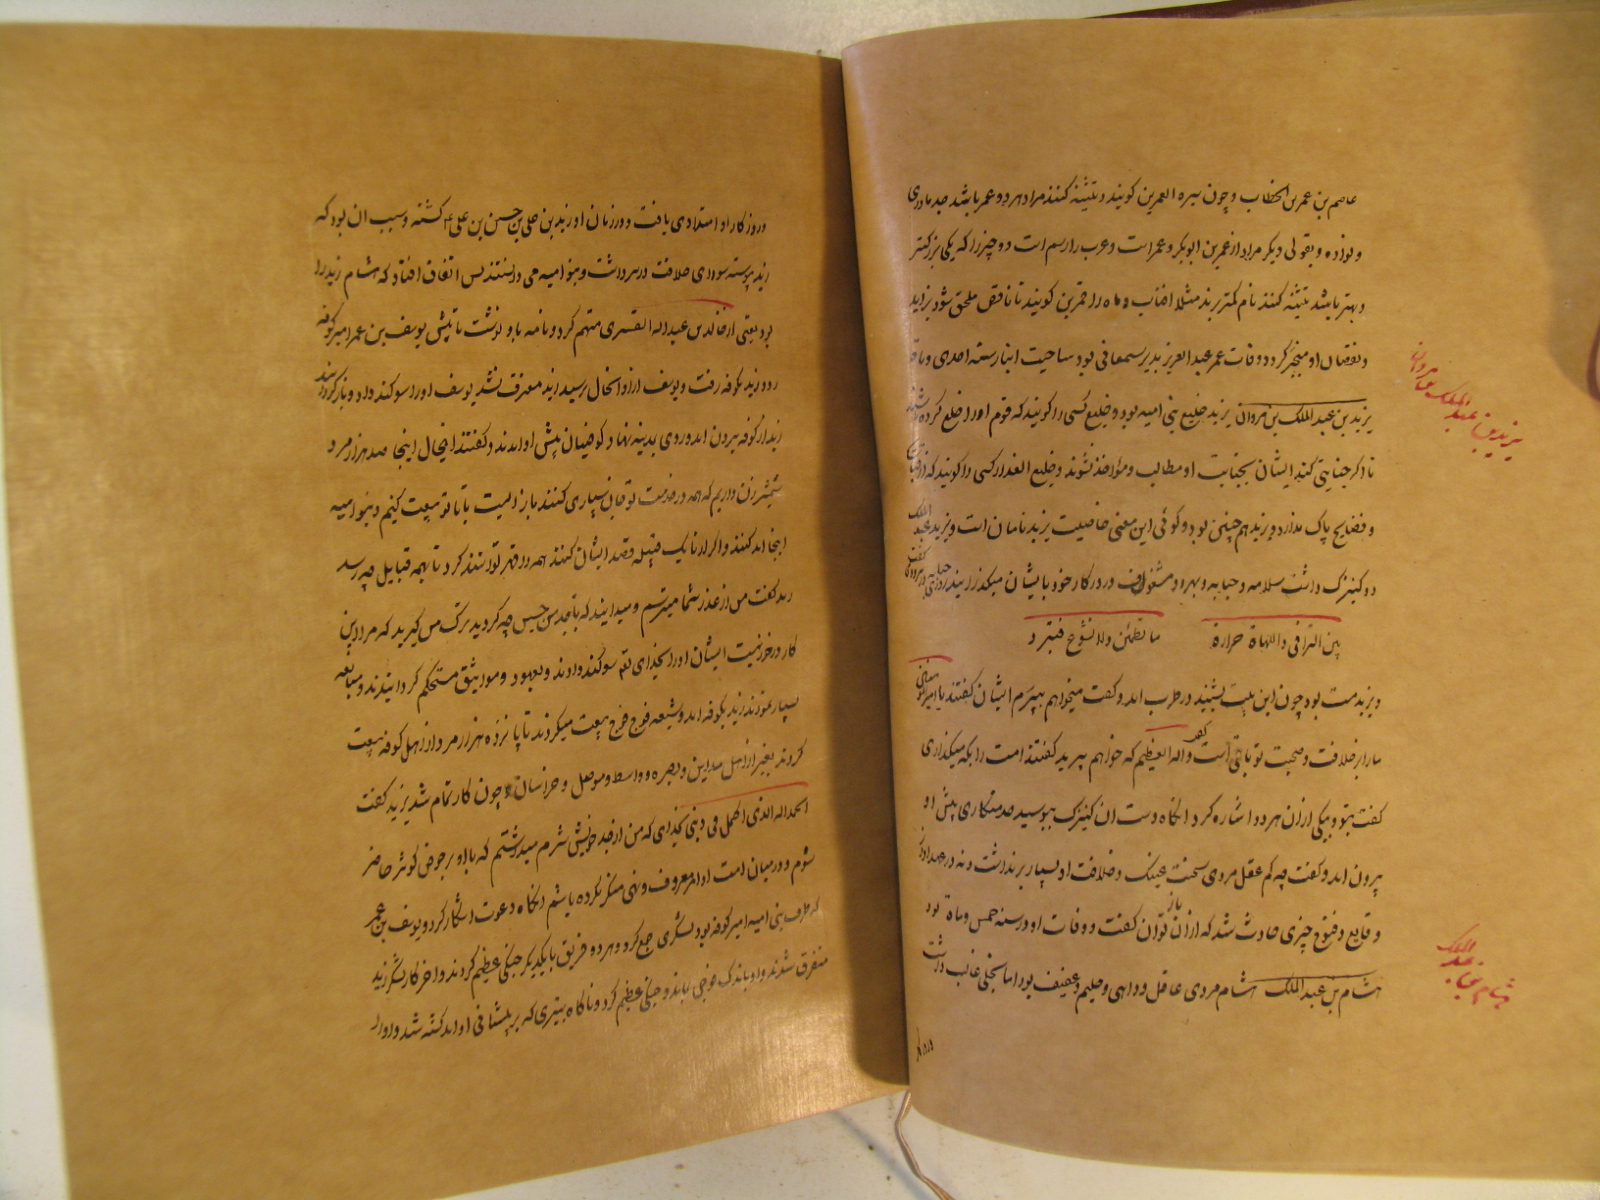 عاصم بن عمر بن الخطاب و چون سیره العمرین کویند و تثنیه کنند مراد هر دو عمر باشد جد مادری
و نواده و بقولی دیکر مراد از عمرین ابوبکر و عمر است و عرب را رسم است دو چیز را که یکی بزرکتر
و بهتر باشد تثنیه کنند بنام کمتر
مثلا افتاب و ماه را قمرین کویند تا ناقص ملحق شود بزاید
و نقصان او منجبر کردد و وفات عمر عبد العزیز بدیر سمعان بود سنه احدی و مایه
یزید بن عبد الملک بن مروان
یزید بن عبد الملک بن مروان یزید خلیع بنی امیه بود و خلیع کسی را کویند که قوم او را خلع کرده باشند
تا اکر جنایتی کند ایشان بجنایت او مطالب و مؤاخذ نشوند و خلیع العذار کسی را کویند که از
و فضایح پاک ندارد و یزید هم چنین بود و کوئی این معنی خاصیت یزید نامان است و یزید عبد الملک
دو کنیزک داشت سلامه و حبابه و بهر دو مشغول و روزکار خود با ایشان میکذرانید روزی حبابه سرودی کفت
بین التراقی واللهاة حرارة
ما تطمئن ولا تسوغ فتبرد
و یزید مست بود چون این بیت بشنید در طرب امد و کفت میخواهم بپرم ایشان کفتند یا امیر المؤمنین
ما را بخلافت و صحبت تو است کفت والله العظیم که خواهم پرید کفتند امت را بکه میکذاری
کفت بتو و بیکی از ان هر دو اشاره کرد انکاه دست ان کنیزک ببوسید خدمتکاری پیش او
بیرون امد و کفت چه کم عقل مردی سخنت عینک و خلافت او بسیار برنداشت و نه در عهد او از
وقایع و فتوح چیزی حادث شد که از ان باز توان کفت و وفات او در سنه خمس و مایة بود
هشام بن عبد الملک
هشام بن عبد الملک هشام مردی عاقل و داهی و حلیم و عفیف بود اما بخلی غالب داشت
و روزکار او امتدادی یافت و در زمان او زید بن علی بن حسین بن علی ع کشته و سبب ان بود که
زید پیوسته سودای خلافت در سر داشت و بنو امیه می دانستند پس اتفاق افتاد که هشام زید را
بودیعتی از خالد بن عبد الله القسری متهم کرد و نامه باو نوشت تا پیش یوسف بن عمر امیر کوفه
رود زید بکوفه رفت و یوسف ازو انحال پرسید زید معترف نشد یوسف او را سوکند داد و بازکردانید
زید از کوفه بیرون امد و روی بمدینه نهاد و کوفیان پیش او امدند و کفتند انحال اینجا صد هزار مرد
شمشیر زن داریم که همه در خدمت تو جان سپاری کنند باز ایست تا با تو بیعت کنیم و بنو امیه
اینجا اندکند و اکر از ما یک قبیله قصد ایشان کنند همه را قهر توانند کرد تا بهمه قبایل چه رسد
زید کفت من از غدر شما میترسم و میدانید که با جد من حسین چه کردید ترک من کیرید که مرا این
کار درخور نیست ایشان او را بخدای تعه سوکند دادند و بعهود و مواثیق مستحکم کردانیدند و مبالغه
بسیار نمودند زید بکوفه امد و شیعه فوج فوج بیعت میکردند تا پانزده هزار مرد از اهل کوفه بیعت
کردند بغیر از اهل مداین و بصره و واسط و موصل و خراسان و چون کار تمام شد زید کفت
الحمد لله الذی اکمل لی دینی بخدای که من از جد خویش شرم میداشتم که با او بر حوض کوثر حاضر
شوم و در میان امت او امر معروف و نهی منکر نکرده باشم انکاه دعوت اشکار کرد و یوسف بن عمر
که طرف بنی امیه امیر کوفه بود لشکری جمع کرد و هر دو فریق با یکدیکر جنکی عظیم کردند و اخر کار لشکر زید
متفرق شدند و او با اندک فوجی بماند و جنکی عظیم کرد و ناکاه بتیری که بر پیشانی او امد کشته شد و او را